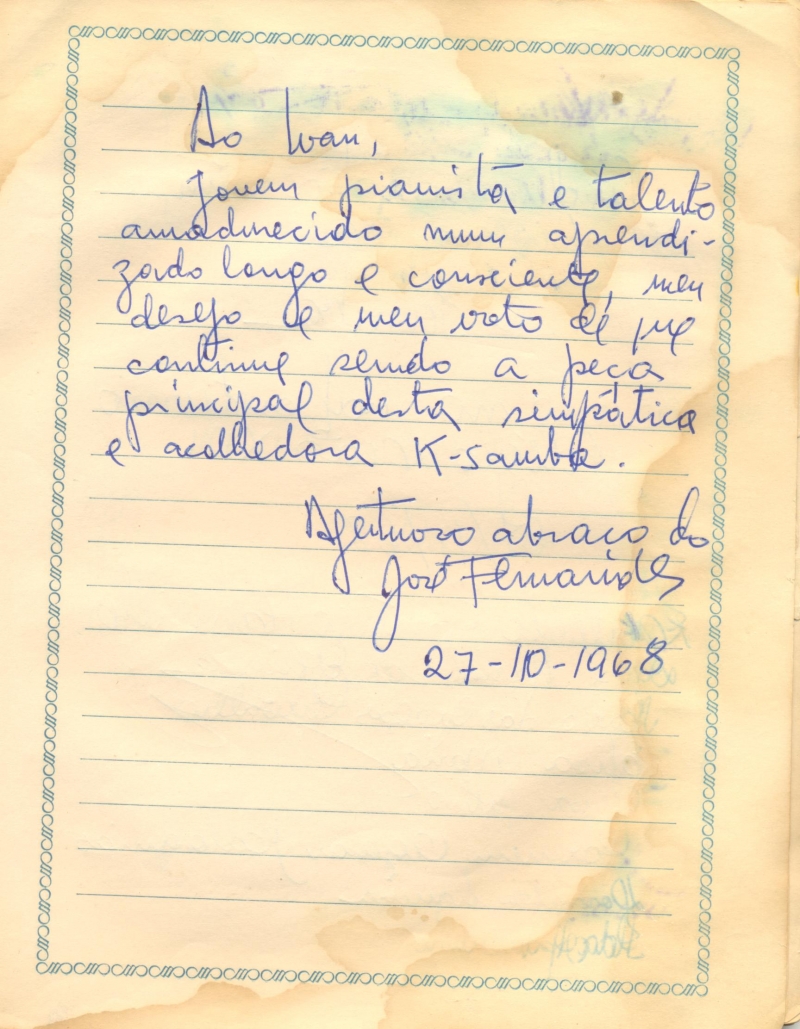 Ao Ivan,
Jovem pianista e talento
amadurecido num aprendi-
zado longo e consciente, meu
desejo e meu voto é que
continue sendo a peça
principal desta simpática
e acolhedora K-samba.
Afetuoso abraço do
José Fernandes
27-10-1968